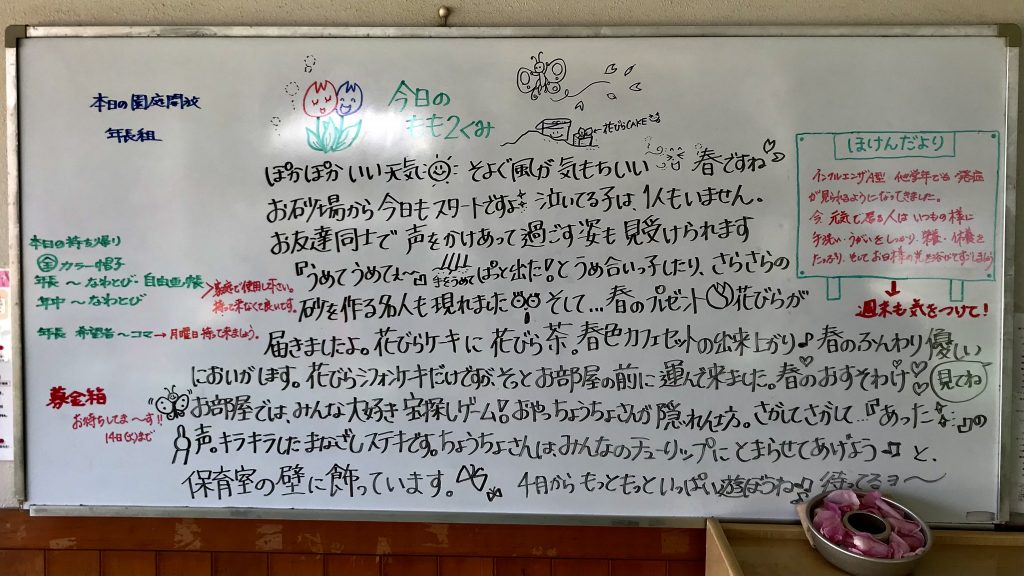 本日の園庭開放
年長組
今日の
もも2ぐみ
←花びらCAKEです
ぽかぽかいい天気 そよぐ風が気もちいい 春ですね♪
お砂場から今日もスタートですよ 泣いてる子は、1人もいません。
お友達同士で声をかけあって過ごす姿も見受けられます
『うめてうめてぇ〜』手をうめて ぱっと出た!とうめ合いっ子したり、さらさらの
砂を作る名人も現れました そして…春のプレゼント 花びらが
届きましたよ。花びらケーキに花びら茶。春色カフェセットの出来上がり♪春のふんわり優しい
においがします。花びらシフォンケーキだけですが、そっとお部屋の前に運んで来ました。春のおすそわけ♡ 見てね
お部屋では、みんな大好き宝探しゲーム!おや、ちょうちょさんが隠れん坊。さがしてさがして…『あったぁ』の
声。キラキラしたまなざしステキです。ちょうちょさんは、みんなのチューリップにとまらせてあげよう♫と、
保育室の壁に飾っています。 4月からもっともっといっぱい遊ぼうね♫ 待ってるヨ〜
ほけんだより
インフルエンザA型 他学年でも発症
が見られるようになってきました。
今元気で居る人はいつもの様に
手洗い・うがいをしっかり、栄養・休養を
たっぷり、そしてお日様の光を浴びてすごしましょう
週末も気をつけて!
本日の持ち帰り
全 カラー帽子
年長〜なわとび・自由画帳
年中〜なわとび
家庭で使用し下さい。
持って来なくて良いです。
年長 希望者〜コマ→月曜日持って来ましょう。
募金箱
お待ちしてま〜す!!
14日(火)まで